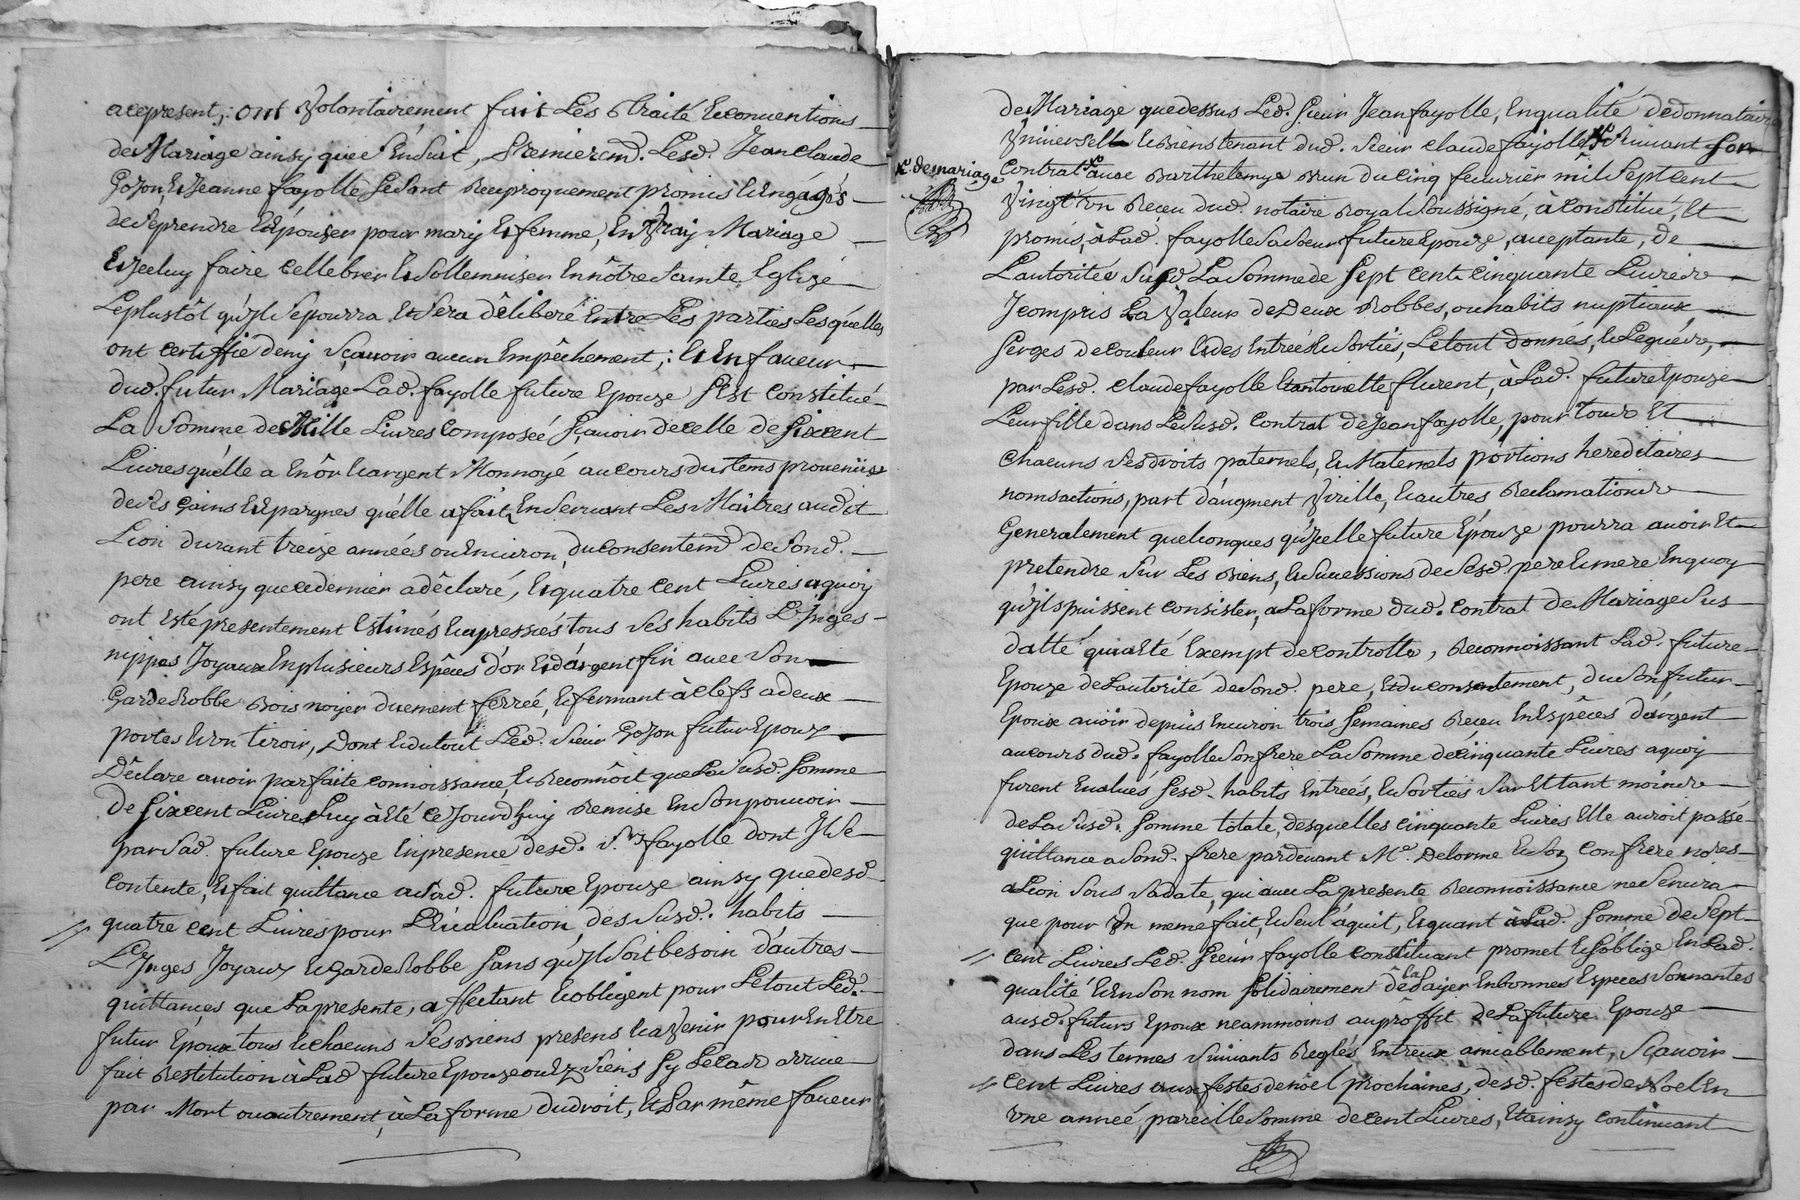 acepresent; ont Volontairement fait Les traité Et conventions
de Mariage ainsy que s'Ensuit, Premierem.t Lesd. Jean claude
Gozon, Et Jeanne fayolle se sont Reciproquement promis Et Engagés
de se prendre Et Epouser pour mary Et femme, En Vray Mariage
Et Jceluy faire cellebrer Et sollemniser En nôtre Sainte Eglize
Leplustôt qu'Jl se pourra Et sera délibéré Entre Les parties Lesquelles
ont certiffié deny sçauoir aucun Empêchement; Et En faueur
dud. futur Mariage Lad. fayolle future Epouze s'Est constitué
La somme de Mille Liures composée sçauoir de celle de six cent
Liures qu'elle a En ôr Et argent Monnoyé au cours du tems prouenüe
de ses gains Et Epargnes qu'elle a fait, En seruant Les Maîtres audit
Lion durant treize années ou Enuiron, du consentem.t de sond.
pere ainsy que ce dernier a déclaré, Et quatre cent Liures a quoy
ont Esté presentement Estimés Et appressiés tous ses habits L'Jnges
nippes Joyaux En plusieurs Espêces d'or Et d'argent fin auec son
Garderobbe Bois noyer duement ferré, Et fermant à clefs a deux
portes Et vn tiroir, Dont Et du tout Led. sieur Gozon futur Epoux
Déclare auoir parfaite connoissance, Et Reconnôit que La susd. somme
De six cent Liures Luy à Eté cejourd'huy Remise En son pouuoir
par sad. future Epouze En presence desd. s.rs fayolle dont Jl se
contente, Et fait quittance a sad. future Epouze ainsy que desd
quatre cent Liures pour L'Eualuation, des susd. habits
L'Jnges Joyaux Et Garderobbe sans qu'Jl soit besoin d'autres
quittances que La presente, affectant Et obligent pour Le tout Led.
futur Epoux tous Et chacuns ses Biens presens Et a Venir pour En Etre
fait Restitution à Lad future Epouze ou Ez siens sy Le cas arriue
par Mort ou autrement, à La forme du droit, Et Par même faueur
de Mariage que dessus Led. sieur Jean fayolle, En qualité de donnataire
Vniuerselle Et Biens tenant dud. sieur claude fayolle suiuant son
contrat auec Barthelemye Brun du cinq feburier mil sept cent
C.t de mariage
Vingt Vn Reçeu dud. notaire Royal soussigné, à constitué, Et
promis, à Lad. fayolle sa soeur future Epouze, acceptante, de
L'autoritée susd La somme de sept cent cinquante Liures
Jcompris La Valeur de Deux Robbes, ou habits nuptiaux,
serges de couleur Et des Entrées Et sorties, Le tout donnés, et Legués,
par Lesd. claude fayolle Et antoinette flurent, à Lad. future Epouze
Leur fille dans Le susd. contrat de Jean fayolle, pour Tous Et
chacuns ses droits paternels, Et Maternels portions hereditaires
noms actions, part d'augment Virille, Et autres Reclamations
Generalement quelconques qu'Jcelle future Epouze pourra auoir Et
pretendre sur Les Biens, Et successions de sesd. pere Et mere En quoy
qu'Jls puissent consister, a La forme dud. contrat de Mariage sus
datté qui a Eté Exempt de controlle, Reconnoissant Lad. future
Epouze de L'autorité de sond. pere, Et du consentement, du son futur
Epoux auoir depuis Enuiron trois semaines Reçeu En Espêces d'argent
au cours dud. fayolle son frere La somme de cinquante Liures a quoy
furent Eualués sesd. habits Entrées, Et sorties sur Et tant moins
de La susd. somme totale, desquelles cinquante Liures Elle auroit passé
quittance a sond. frere pardeuant M.e Delorme Et son confrere no.res
a Lion sous sa date, qui auec La presente Reconnoissance ne seruira
que pour Vn meme fait, Et seul aquit, Et quant à Lad. somme de sept
cent Liures Led. sieur fayolle constituant promet Et s'oblige En Lad.
qualité Et En son nom solidairement de La payer En bonnes Especes sonnantes
ausd. futurs Epoux neammoins au profit de La future Epouze
dans Les termes suiuants Reglés Entreux amiablement, sçauoir
cent Liures aux festes de nöel prochaines, desd. festes de Noel En
vne année, pareille somme de cent Liures, Et ainsy continuant